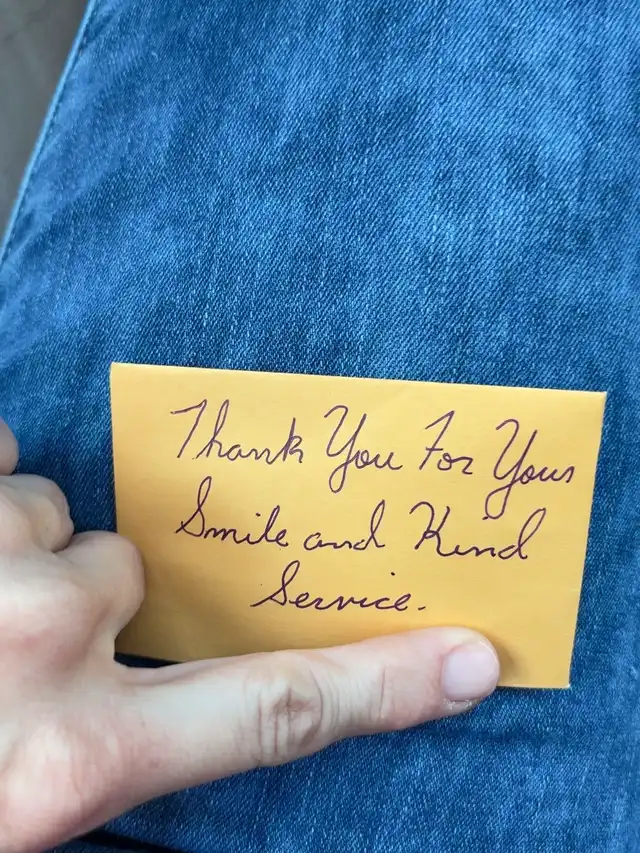 Thank You For Your
Smile and Kind
Service.